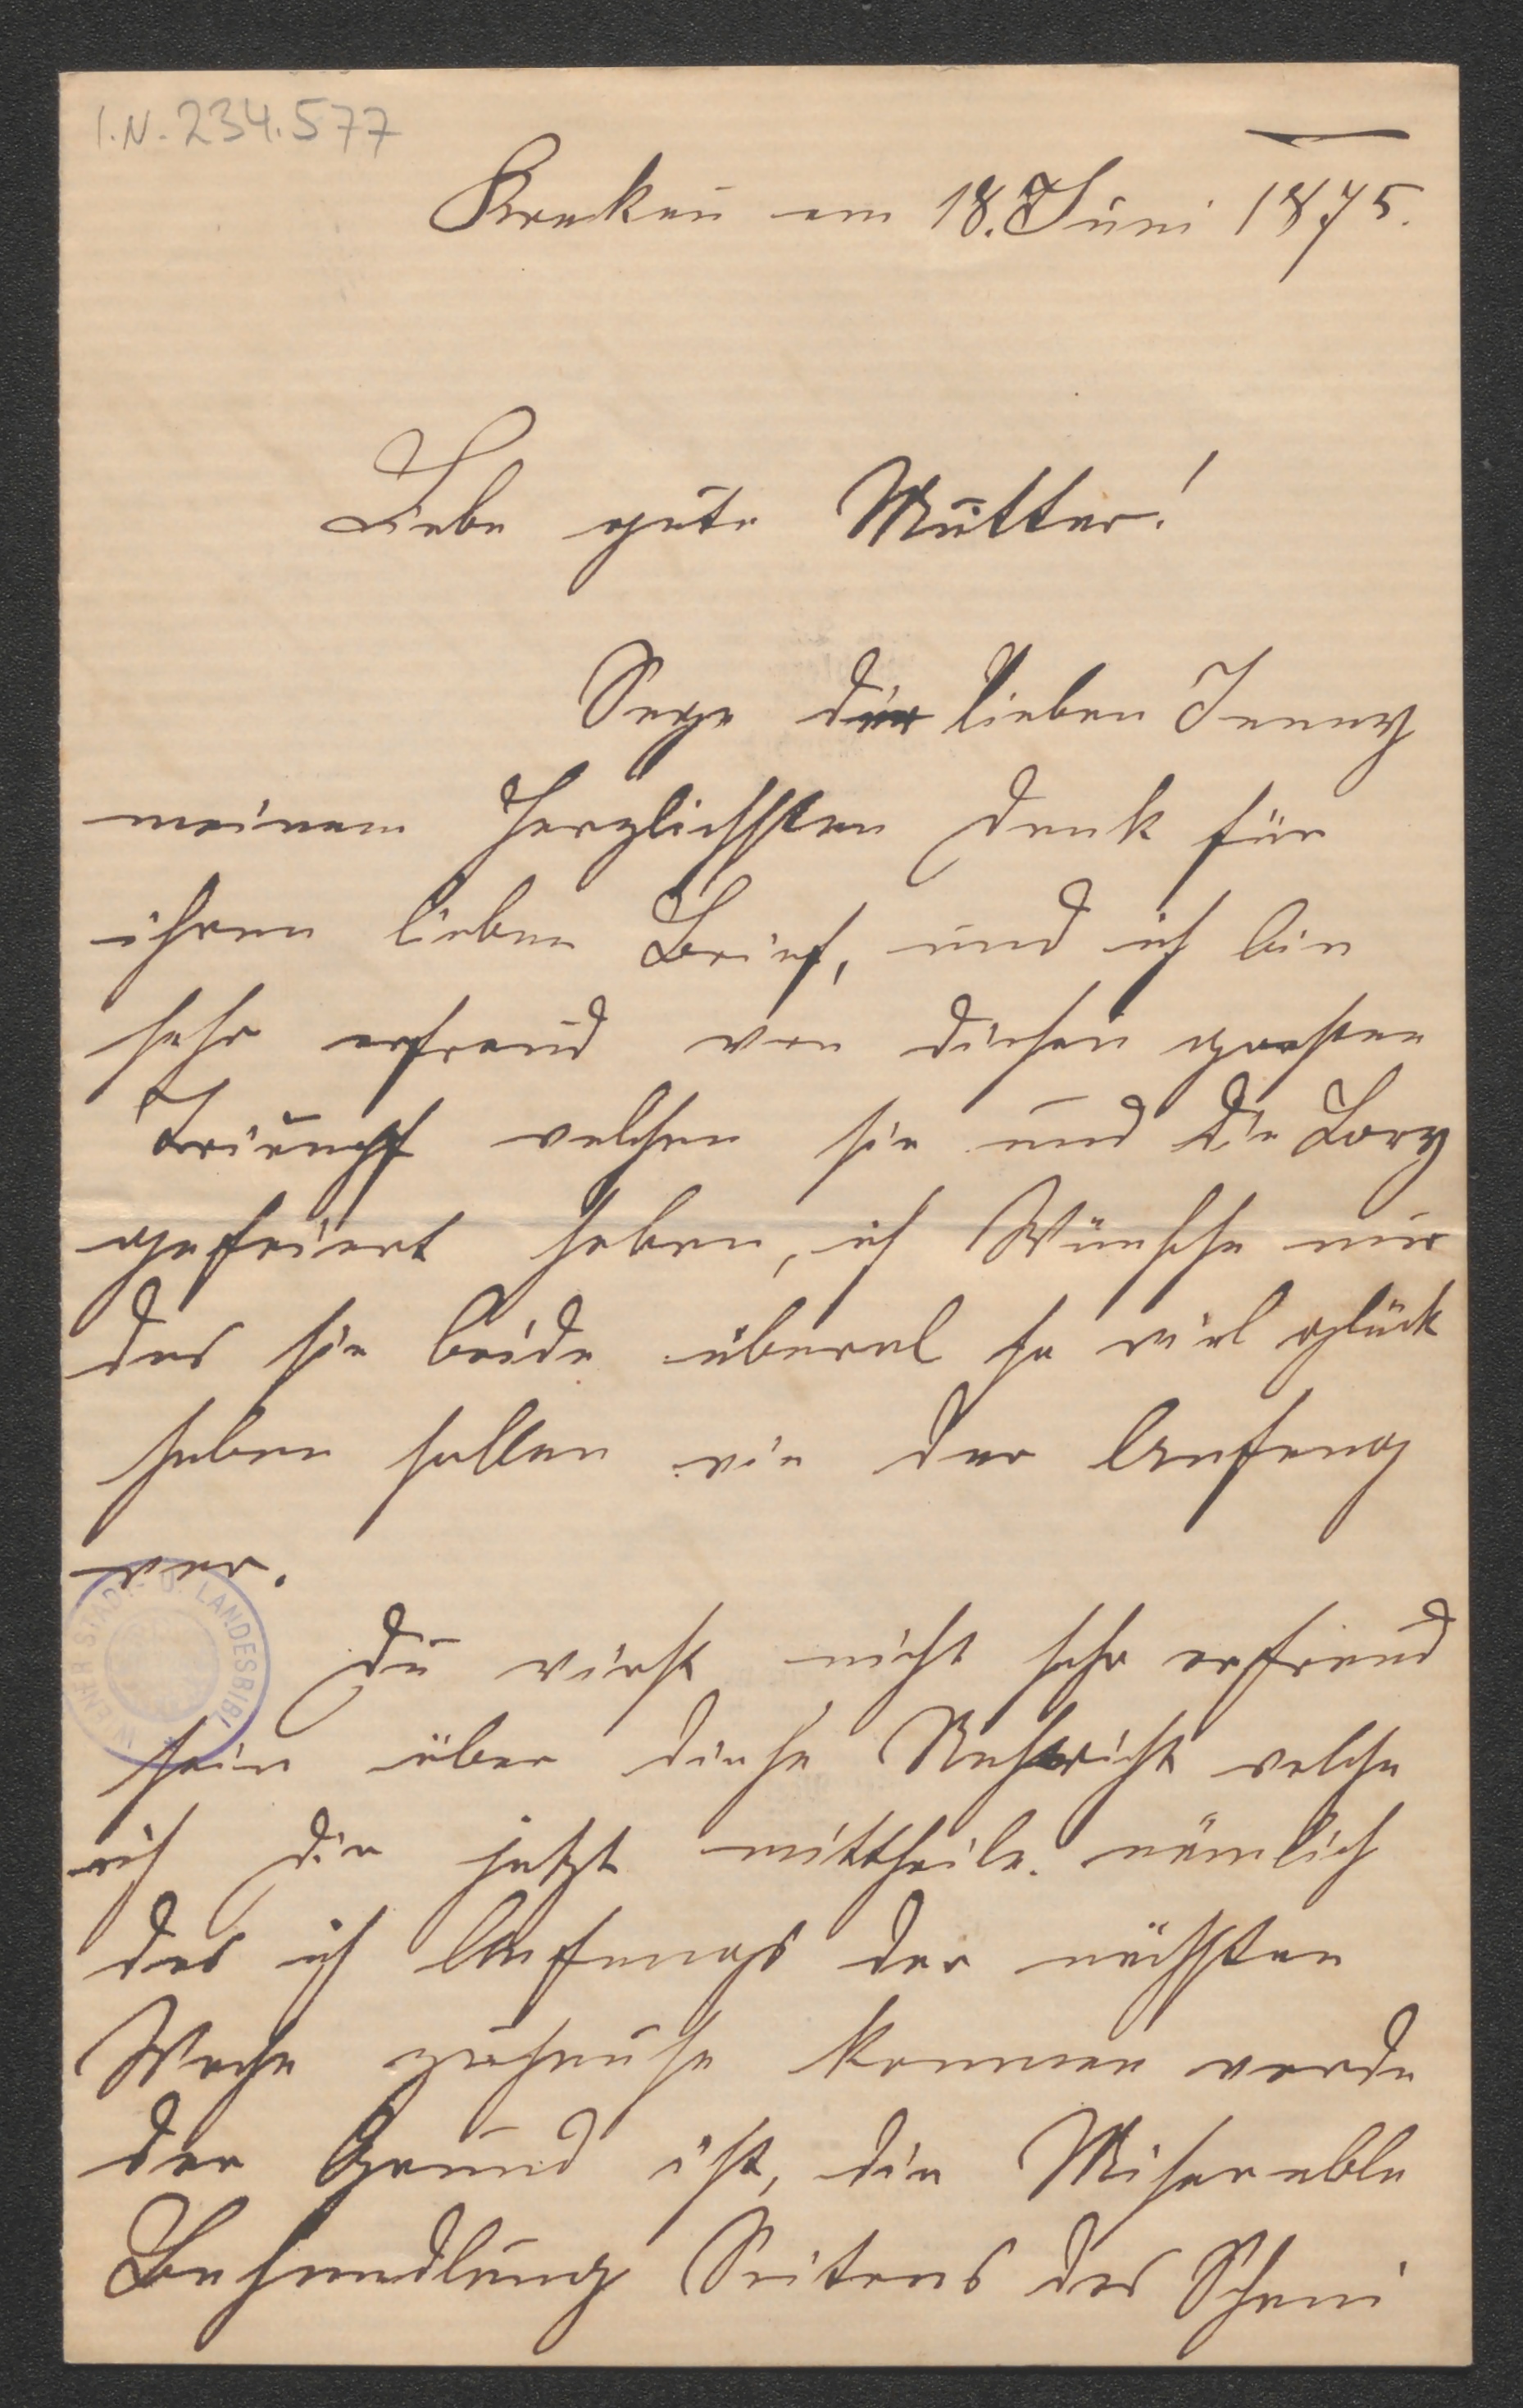 I.N. 234.577
Krakau am 18. Juni 1875.
Liebe gute Mutter!
Sage der lieben Jenny
meinem Herzlichsten Dank für
ihren lieben Brief, und ich bin
sehr erfreud von diesen grosten
Triumpf welchen sie und die Lory
gefeiert haben, ich Wünsche nur
das sie beide überal so viel glück
haben sollen wie der Anfang
war.
Du wirst nicht sehr erfreud
sein über diese Nachricht welche
ich Dir jetzt mittheile. nämlich
das ich Anfangs der nächsten
Woche zuhause kommen werde
der Grund ist, die Miserable
Behandlung Seitens des
WIENER STADT- U. LANDESBIBL.